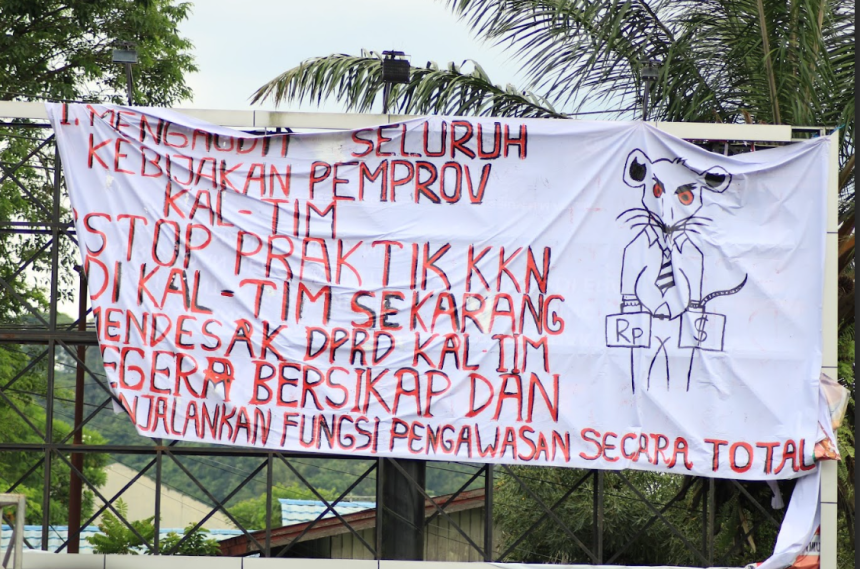 1. MENGAUDIT SELURUH
KEBIJAKAN PEMPROV
KAL-TIM
STOP PRAKTIK KKN
DI KAL-TIM SEKARANG
MENDESAK DPRD KAL-TIM
SEGERA BERSIKAP DAN
MENJALANKAN FUNGSI PENGAWASAN SECARA TOTAL
Rp $